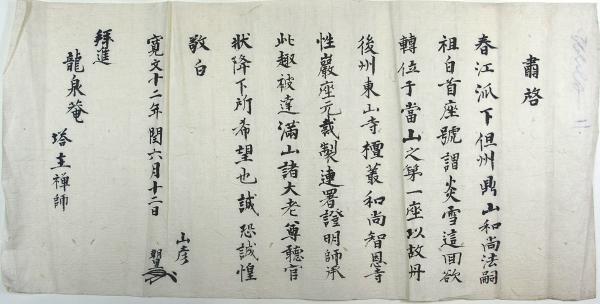 肅啓
春江派下但州鼎山和尚法嗣
祖白首座號謂炎雪這回欲
轉位于當山之第一座以故丹
後州東山寺檀叢和尚智恩寺
性巖座元裁製連署證明師承
此趣被達滿山諸大老尊聽官
狀降下所希望也誠恐誠惶
敬白
山彦
寛文十二年閏六月十二日
拜進
龍泉菴
塔主禪師